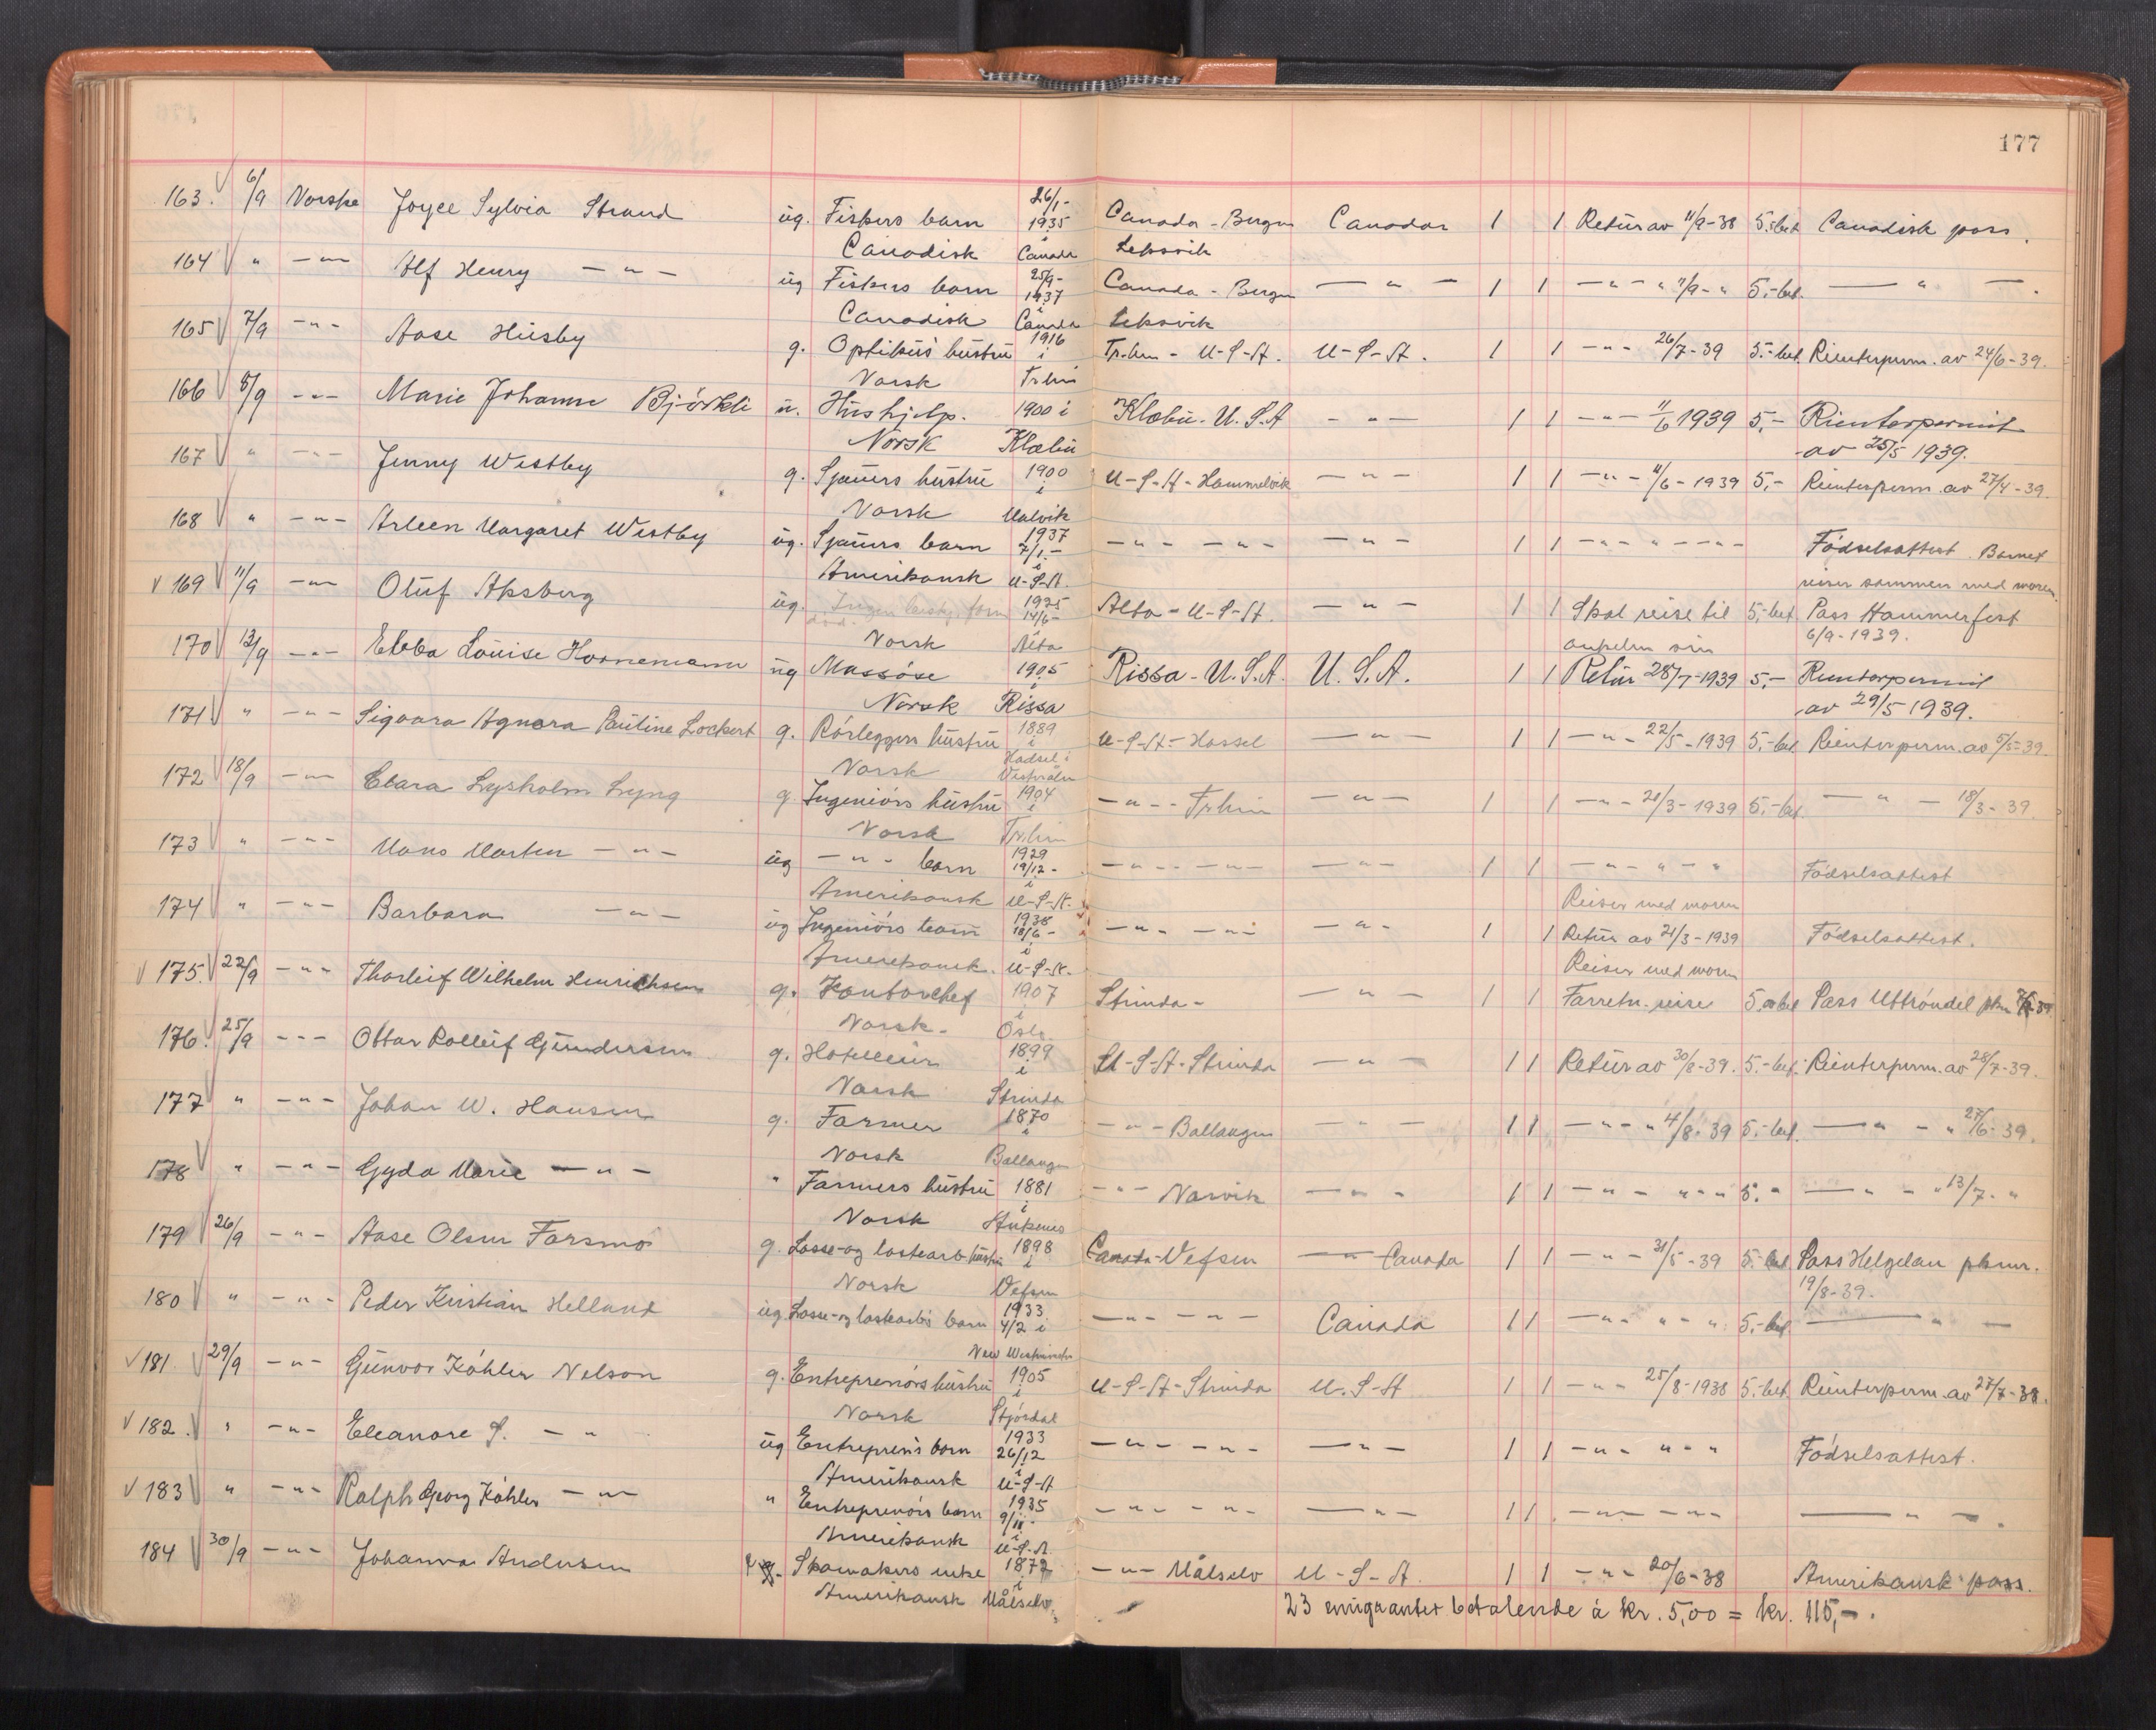 177
163. 6/9 Norske Joyce Sylvia Strand ug. Fiskers barn 26/1- 1935 Canada - Bergen Canada 1 1 Retur av 11/9-38 5,-bet. Canadisk pass.
Canadisk Canada Leksvik
164 " -"- Alf Henry -"- ug Fiskers barn 25/9- 1937 Canada - Bergen -"- 1 1 -"- " 11/9-" 5,-bet. -"-
Canadisk i Canada Leksvik
165 7/9 -"- Aase Husby g. Optikus hustru 1916 i Tr.hm - U-S-A. U-S-A. 1 1 -"- 26/7-39 5.-bet. Rienterperm. av 24/6-39.
Norsk Tr.hm
166 8/9 -"- Marie Johanne Björkli u. Hushjelp. 1900 i Klæbu - U.S.A -"- 1 1 -"- 11/6 1939 5,- Rienterpermit
Norsk Klæbu av 25/5 1939.
167 " -"- Jenny Westby g. Sjauers hustru 1900 i U-S-A - Hommelvik -"- 1 1 -"- 11/6-1939 5,- Rienterperm. av 27/4-39.
Norsk Malvik
168 " -"- Arleen Margaret Westby ug. Sjauers barn 1937 7/1.- -"- -"- -"- 1 1 -"- " -"- Födselsattest. Barnet
Amerikansk i U-S-A. reiser sammen med moren.
169 11/9 -"- Oluf Aksberg ug. Ingen 1925 14/6- Alta - U-S-A. -"- 1 1 Skal reise til 5,-bet. Pass Hammerfest
Norsk i Alta onkelen sin 6/9-1939.
170 13/9 -"- Ebba Louise Hornemann ug Massöse 1905 Rissa - U.S.A. U.S.A. 1 1 Retur 28/7-1939 5,- Rienterpermit
Norsk i Rissa av 29/5 1939.
171 " -"- Sigvara Agnora Pauline Lockert g. Rörleggers hustru 1889 i U-S-A - Hassel -"- 1 1 -"- 22/5-1939 5,-bet. Rienterperm. av 5/5-39.
Norsk Hadsel i Vesterålen
172 18/9 -"- Clara Lysholm Lyng g. Ingeniörs hustru 1904 i -"- Tr.hm -"- 1 1 -"- 21/3-1939 5.-bet. -"- 18/3-39.
Norsk Tr.hm
173 " -"- Hans Morten -"- ug -"- barn 1929 19/12- -"- -"- -"- 1 1 -"- " - " Födselsattest
Amerikansk i U-S-A. Reiser med moren
174 " -"- Barbara -"- ug Ingeniörs barn 1938 18/6- -"- -"- -"- 1 1 Retur av 21/3-1939 Födselsattest.
Amerikansk. i U-S-A. Reiser med moren
175. 22/9 -"- Thorleif Wilhelm Henrichsen g. Kontorchef 1907 Strinda - -"- 1 1 Forretn. reise 5,-bet Pass Uttröndel
Norsk - i Oslo
176. 25/9 -"- Ottar Rolleif Gundersen g. Hotelleier 1899 i U-S-A - Strinda -"- 1 1 Retur av 30/8-39. 5.-bet. Rienterperm. av 28/7-39.
Norsk Strinda
177 " -"- Johan W. Hansen g. Farmer 1870 i -"- Ballangen -"- 1 1 -"- " 4/8-39 5.-bet. -"- " 27/6-39.
Norsk Ballangen
178 " -"- Gyda Marie -"- " Farmers hustru 1881 -"- Narvik -"- 1 1 -"- " - " 5.- " -"- " 13/7-"
Norsk i
179 26/9 -"- Aase Olsen Forsmo g. Losse-og lastearb. hustru 1898 i Canada - Vefsen Canada 1 1 -"- 31/5-39 5.-bet. Pass Helgeland pkmr.
Norsk Vefsen 19/8-39.
180 " -"- Peder Kristian Helland ug Losse-og lastearb's barn 1933 4/2 i -"- -"- Canada 1 1 -"- " - " 5,-bet. -"-
New Westminster
181 29/9 -"- Gunvor Köhler Nelson g. Entreprenörs hustru 1905 i U-S-A - Strinda U.S-A 1 1 -"- 25/8-1938 5,-bet. Rienterperm. av 27/7-38.
Norsk Stjördal
182. " -"- Eleanore S. -"- ug Entrepren's barn 1933 26/12 -"- -"- -"- 1 1 -"- " - " Födselsattest.
Amerikansk i U-S-A
183 " -"- Ralph Georg Köhler -"- " Entreprenörs barn 1935 9/11- -"- -"- -"- 1 1 -"- -"- -"-
Amerikansk i U-S-A
184 30/9 -"- Johanna Andersen g. Skomakers enke 1872 -"- Målselv U-S-A. 1 1 -"- 20/6-38 Amerikansk pass.
Amerikansk i Målselv
23 emigranter betalende à kr. 5,00 = kr. 115,-.